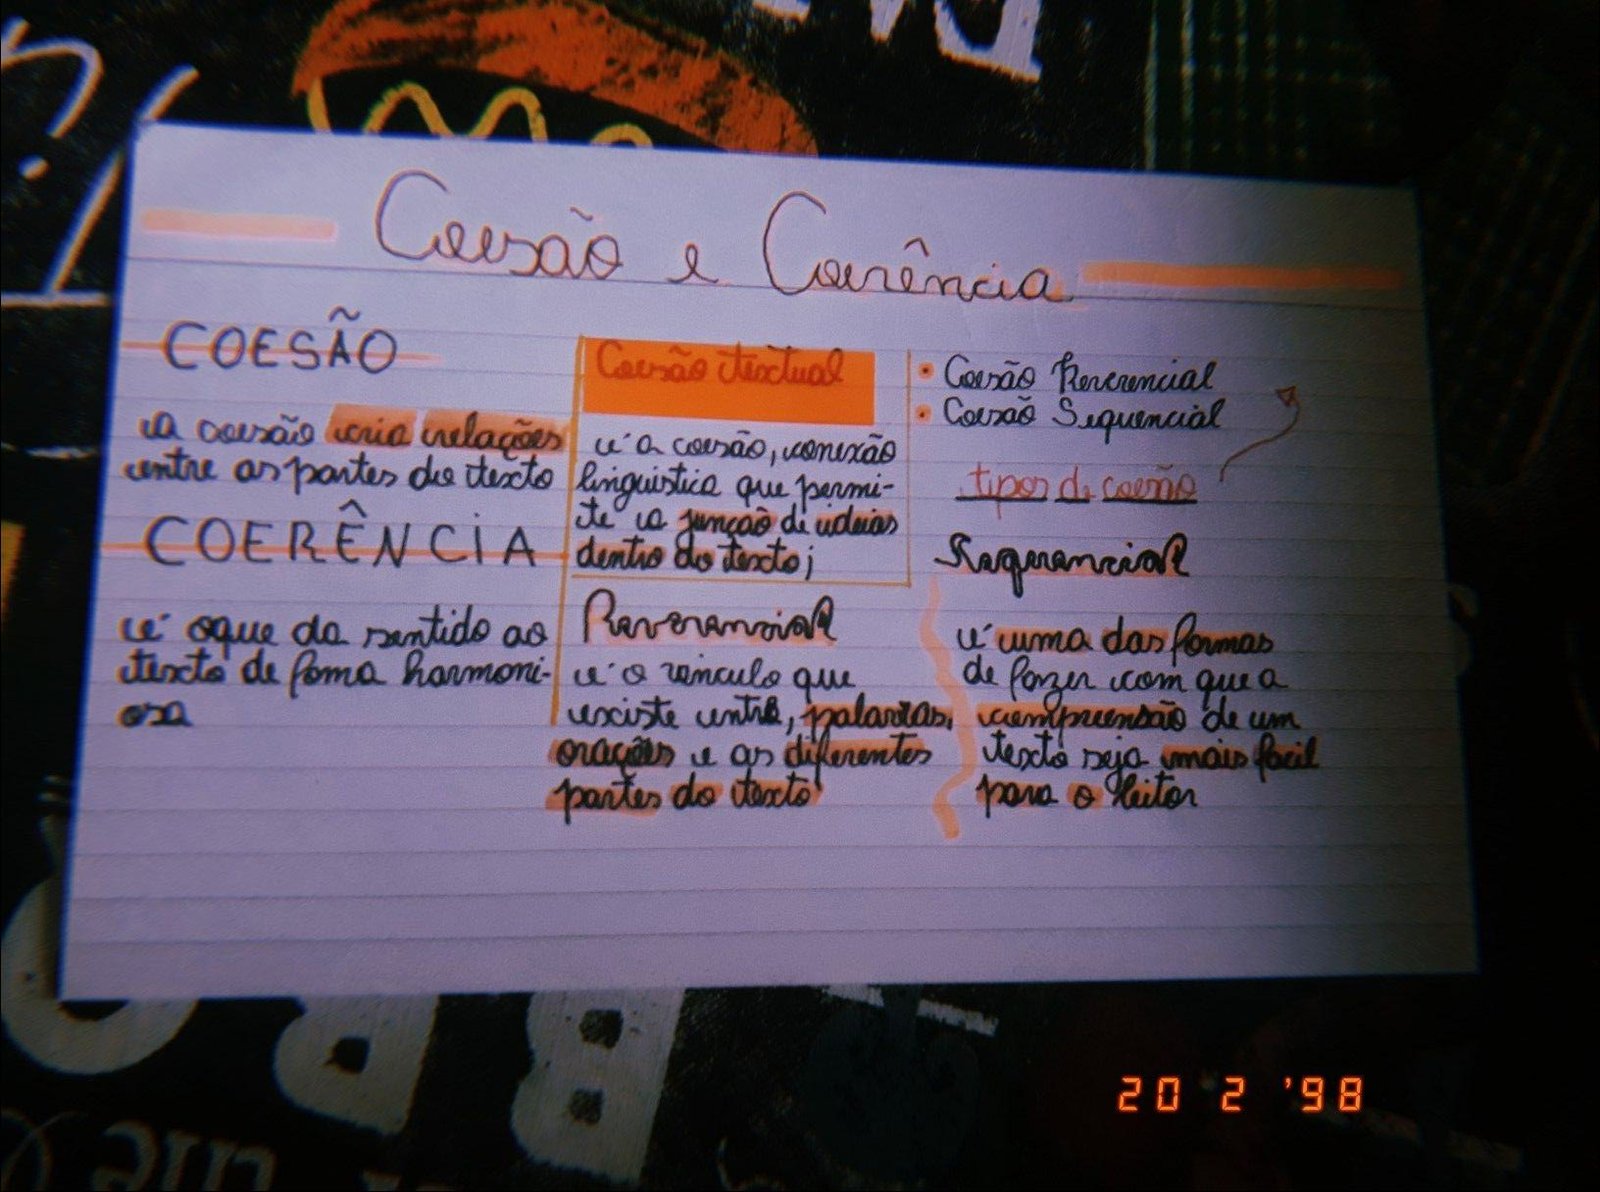 Coesão e Coerência
COESÃO
a coesão cria relações
entre as partes do texto
COERÊNCIA
é oque da sentido ao
texto de foma harmoni-
osa
Coesão textual
é a coesão, conexão
linguistica que permi-
te a junção de ideias
dentro do texto;
Reverencial
é o vinculo que
existe entre, palavras,
orações e as diferentes
partes do texto
• Coesão Reverencial
• Coesão Sequencial
tipos de coesão
Sequencial
é uma das formas
de fazer com que a
compreensão de um
texto seja mais facil
para o leitor
20 2 '98